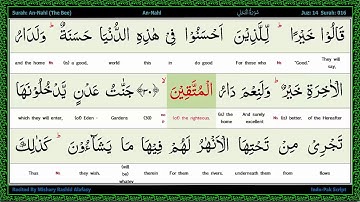 Surah: An-Nahl (The Bee) An-Nahl سُوْرَةُ النَّحْلِ Juz: 14 Surah: 016
قَالُوْا خَيْرًا ؕ لِلَّذِيْنَ اَحْسَنُوْا فِيْ هٰذِهِ الدُّنْيَا حَسَنَةٌ ؕ وَلَدَارُ
and the home Hs (is) a good, world this in do good For those who Hs "Good." They will say,
الْاٰخِرَةِ خَيْرٌ ؕ وَلَنِعْمَ دَارُ الْمُتَّقِيْنَ ﴿۳۰﴾ جَنّٰتُ عَدْنٍ يَّدْخُلُوْنَهَا
which they will enter, (of) Eden - Gardens (30) (of) the righteous. (is) the home And surely excellent Hs (is) better. of the Hereafter
تَجْرِيْ مِنْ تَحْتِهَا الْاَنْهٰرُ لَهُمْ فِيْهَا مَا يَشَآءُوْنَ ؕ كَذٰلِكَ
Thus Hs they wish. (will be) whatever therein For them the rivers. underneath them from flows
Recited By Mishary Rashid Alafasy Indo-Pak Script